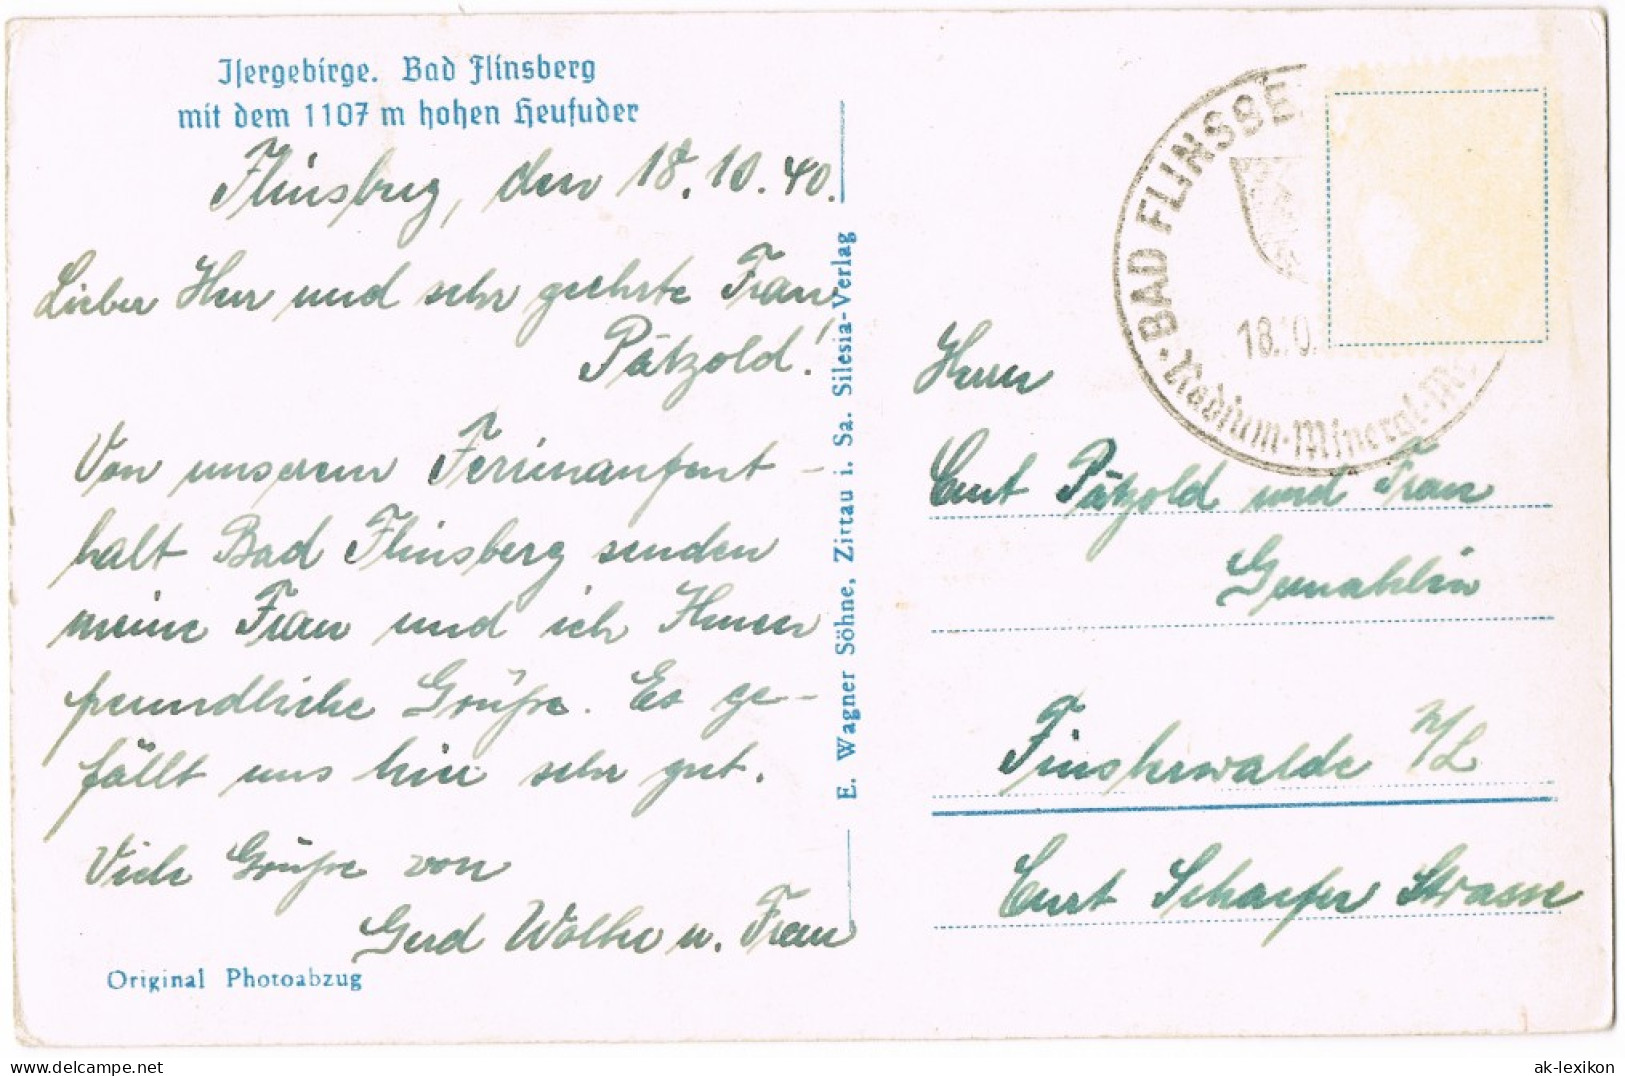 Isergebirge. Bad Flinsberg
mit dem 1107 m hohen Heufuder
Flinsbrg, den 18.10.40.
Lieber Herr und sehr geehrte Frau
Pätzold!
Von unserem Ferienaufent-
halt Bad Flinsberg senden
meine Frau und ich Ihnen
freundliche Grüße. Es ge-
fällt uns hier sehr gut.
Viele Grüße von
Gerd Wolke u. Frau
Original Photoabzug
E. Wagner Söhne, Zittau i. Sa. Silesia-Verlag
BAD FLINSBE
18.10.
Radium-Mineral-M
Herrn
Curt Pätzold und Frau
Gemahlin
Finsterwalde N/L
Curt Schaefer Strasse
ak-lexikon